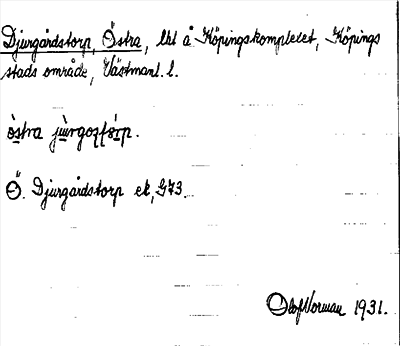 Djurgårdstorp, Östra, lht å Köpingskomplexet, Köpings
stads område, Västmanl. l.
Ö. Djurgårdstorp ek, G73.
Olof Norman 1931.